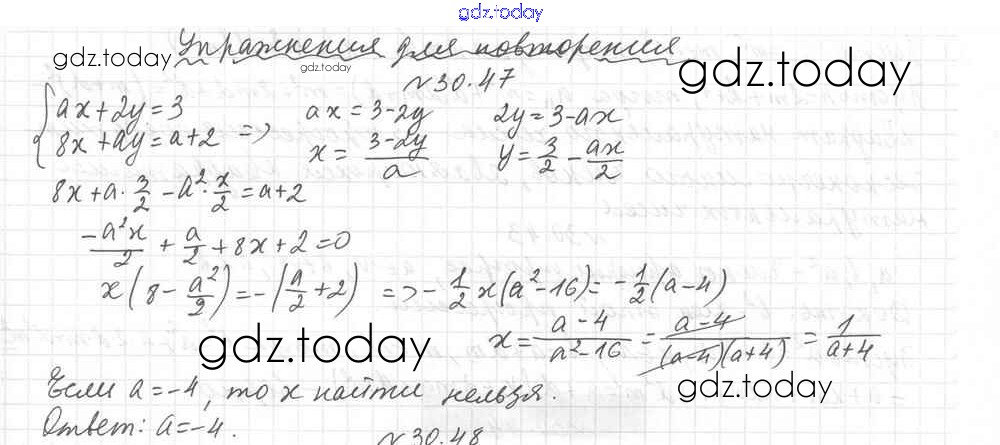 gdz.today
Упражнения для повторения
gdz.today gdz.today gdz.today
№30.47
{ax+2y=3
8x+ay=a+2 =>
ax=3-2y
x=(3-2y)/a
2y=3-ax
y=3/2-ax/2
8x+a·3/2-a²·x/2=a+2
-a²x/2+a/2+8x+2=0
x(8-a²/2)=-(a/2+2) => -1/2x(a²-16)=-1/2(a-4)
x=(a-4)/(a²-16)=(a-4)/((a-4)(a+4))=1/(a+4)
gdz.today gdz.today
Если a=-4, то x найти нельзя.
Ответ: a=-4.
№30.48